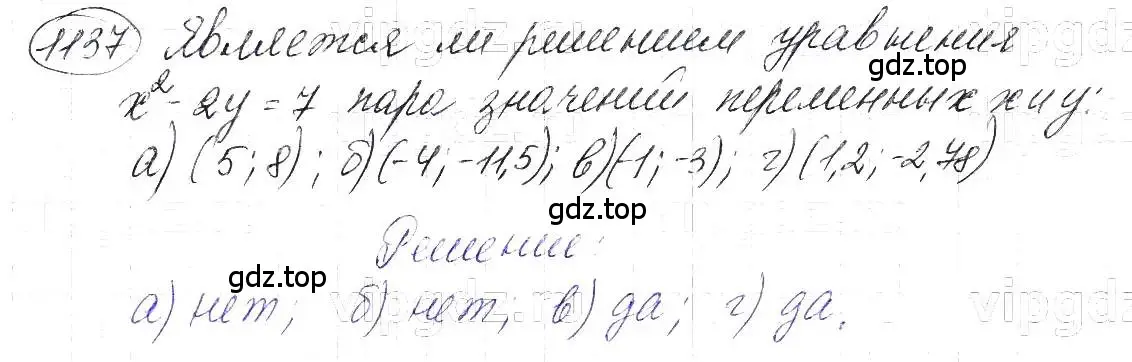 1137 Является ли решением уравнения
x² - 2y = 7 пара значений переменных x и y:
а) (5; 8); б) (-4; -11,5); в) (-1; -3); г) (1,2; -2,78)
gdz.top
Решение:
gdz.top
а) нет; б) нет; в) да; г) да.
gdz.top
vipgdz.ru